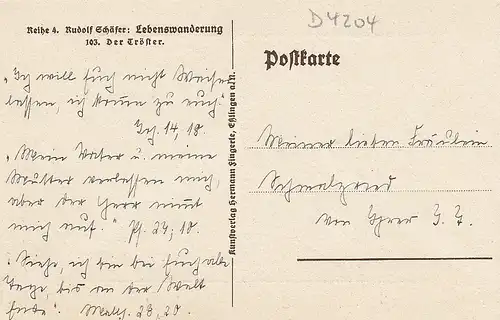 Reihe 4. Rudolf Schäfer: Lebenswanderung
103. Der Tröster.
„Ich will Euch nicht Waisen
lassen, ich komme zu euch."
Joh. 14, 18.
„Mein Vater u. meine
Mutter verlassen mich,
aber der Herr nimmt
mich auf." Ps. 27, 10.
„Siehe, ich bin bei Euch alle
Tage, bis an der Welt
Ende". Matth. 28, 20.
Kunstverlag Hermann Zingerle, Eßlingen a./N.
D4204
Postkarte
Meiner lieben Fräulein
Schmalzried
von